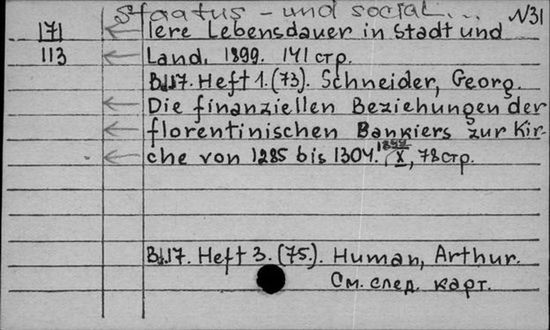 Staatus - und social... N31
171 lere Lebensdauer in Stadt und
113 Land. 1899. 141 стр.
Bd.17. Heft 1. (73). Schneider, Georg.
Die finanziellen Beziehungen der
florentinischen Bankiers zur Kir-
che von 1285 bis 1304. 1899/X, 78 стр.
Bd.17. Heft 3. (75). Human, Arthur.
См. след. карт.